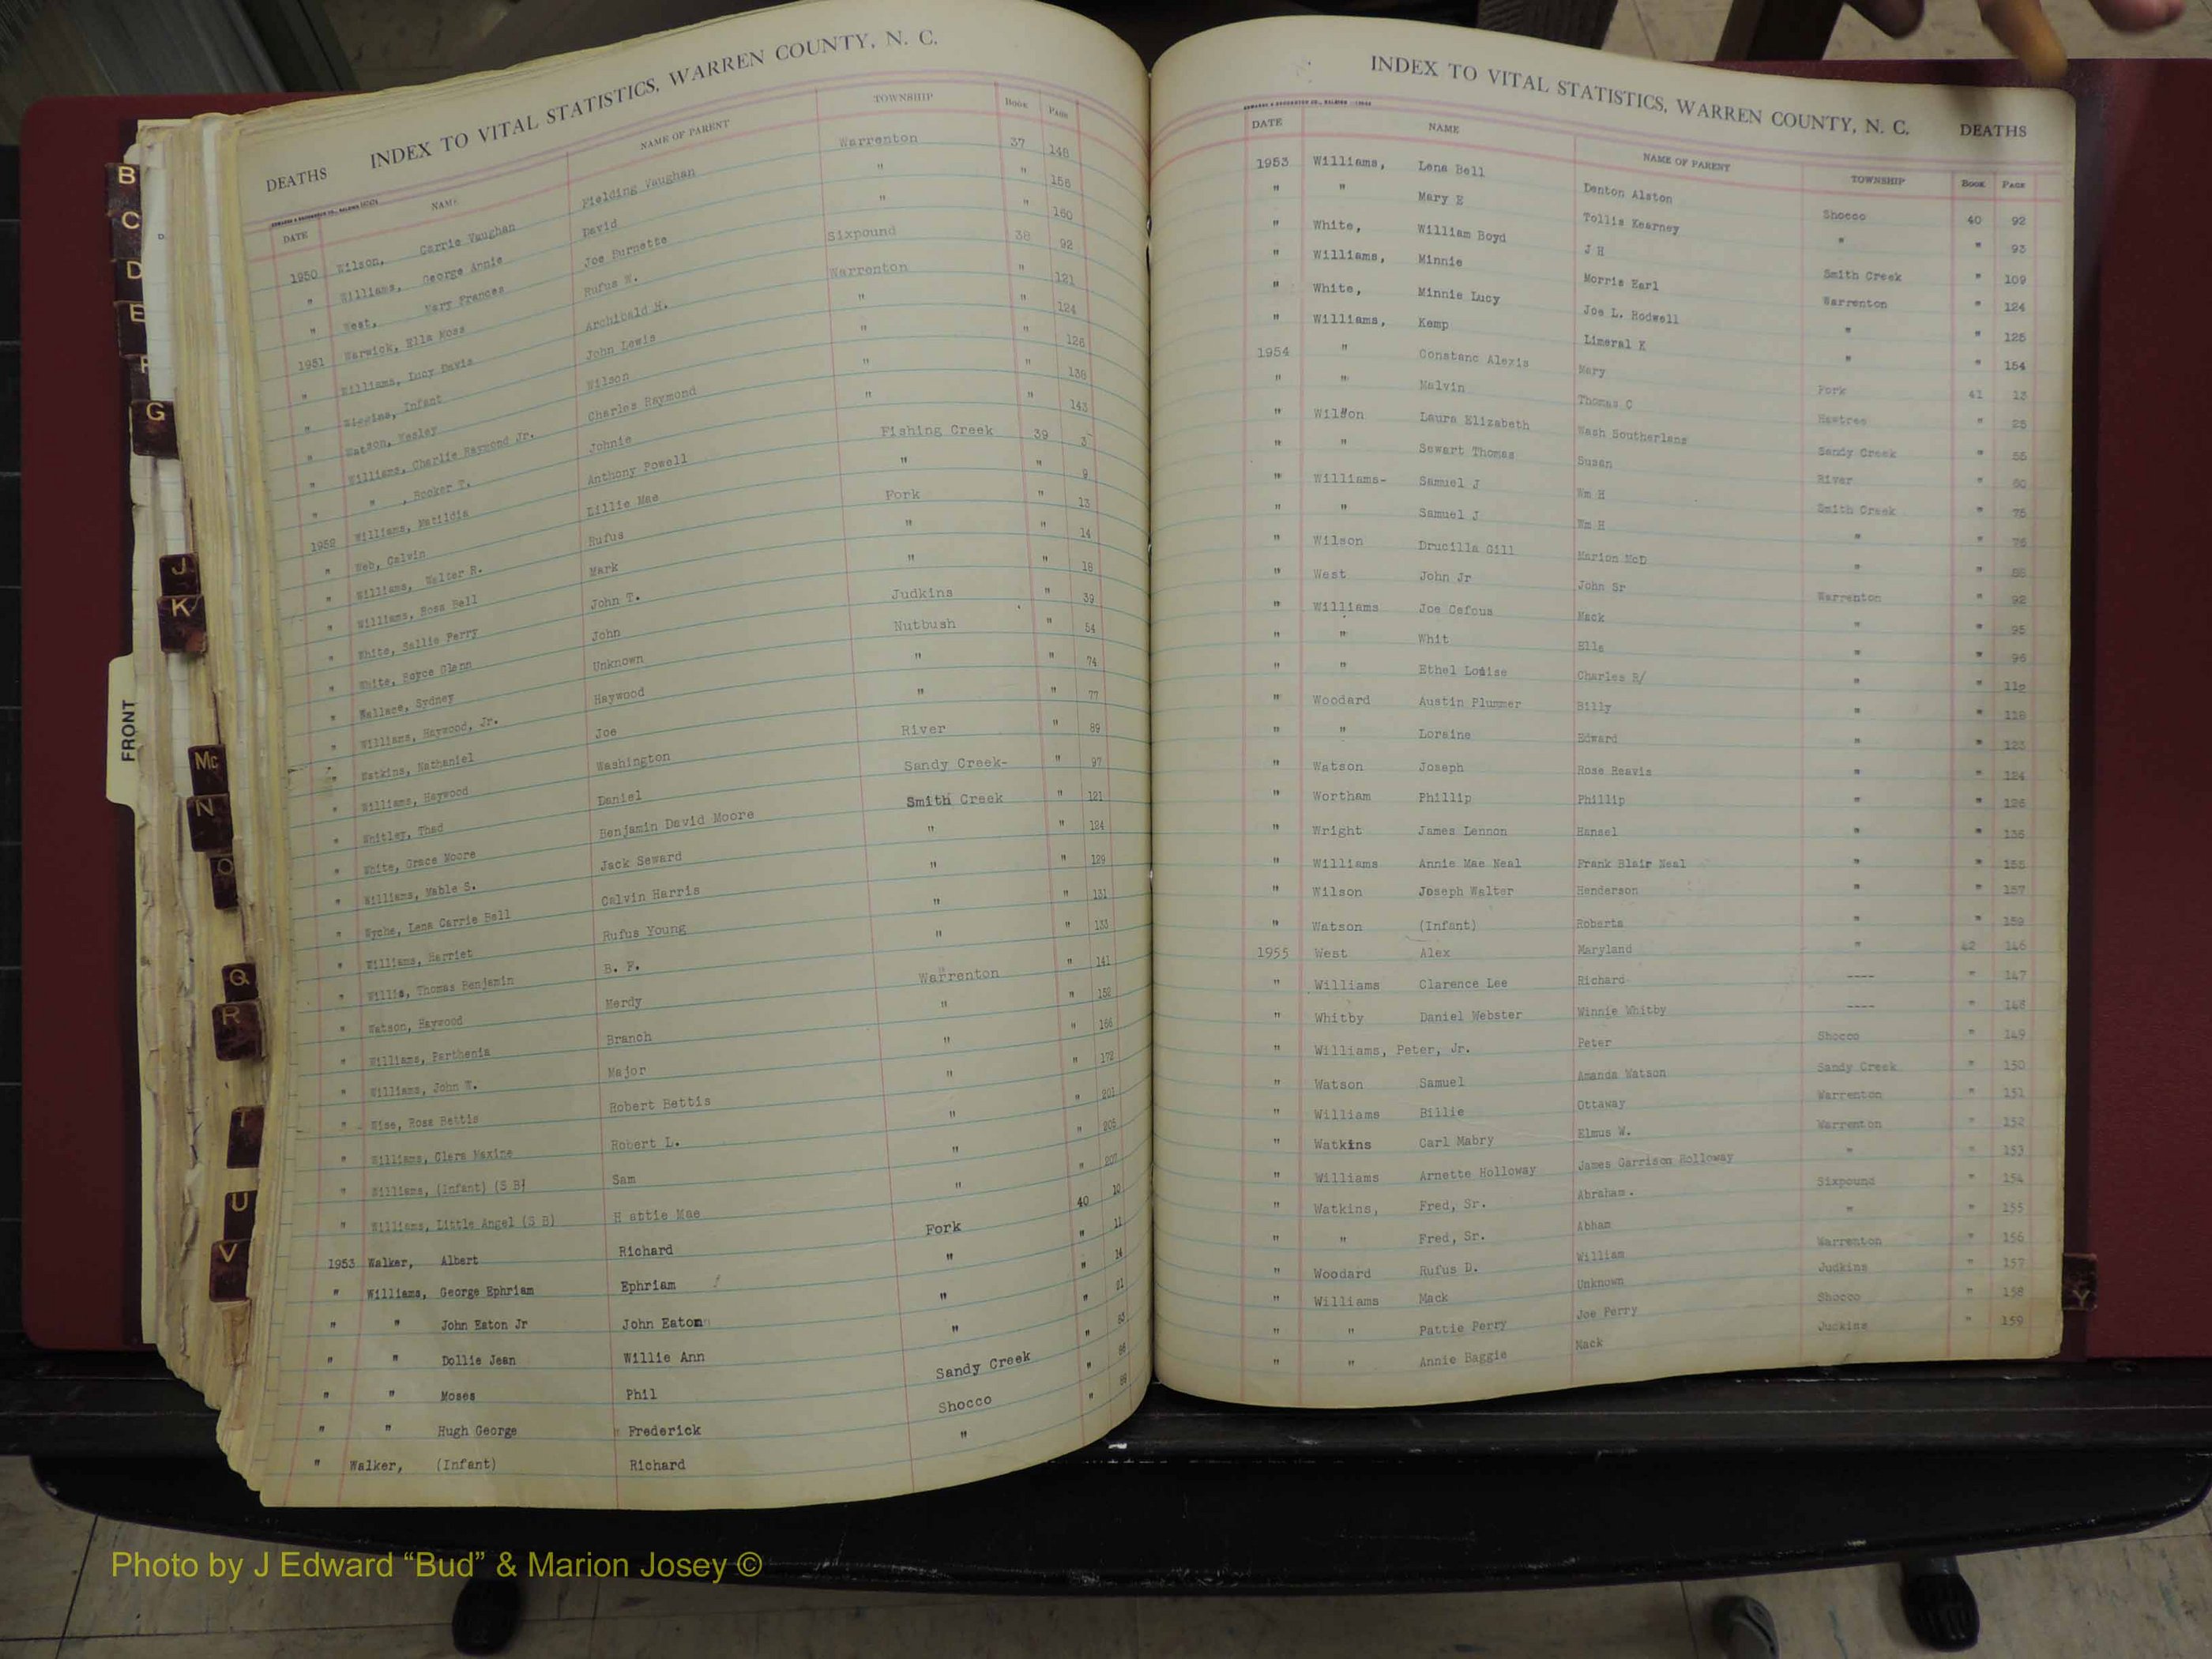 INDEX TO VITAL STATISTICS, WARREN COUNTY, N. C.
DEATHS
DATE NAME NAME OF PARENT TOWNSHIP BOOK PAGE
1950 Wilson, Carrie Vaughan Fielding Vaughan Warrenton 37 148
" Williams, George Annie David " " 156
" West, Mary Frances Joe Burnette " " 160
1951 Warwick, Ella Moss Rufus W. Sixpound 38 92
" Williams, Lucy Davis Archibald H. Warrenton " 121
" Wiggins, Infant John Lewis " " 124
" Watson, Wesley Wilson " " 126
" Williams, Charlie Raymond Jr. Charles Raymond " " 138
" " , Booker T. Johnie " " 143
1952 Williams, Matildia Anthony Powell Fishing Creek 39 3
" Web, Calvin Lillie Mae " " 9
" Williams, Walter R. Rufus Fork " 13
" Williams, Rosa Bell Mark " " 14
" White, Sallie Perry John T. " " 18
" White, Royce Glenn John Judkins " 39
" Wallace, Sydney Unknown Nutbush " 54
" Williams, Haywood, Jr. Haywood " " 74
" Watkins, Nathaniel Joe " " 77
" Williams, Haywood Washington River " 89
" Whitley, Thad Daniel Sandy Creek- " 97
" White, Grace Moore Benjamin David Moore Smith Creek " 121
" Williams, Mable S. Jack Seward " " 124
" Wyche, Lena Carrie Bell Calvin Harris " " 129
" Williams, Harriet Rufus Young " " 131
" Willis, Thomas Benjamin B. F. " " 133
" Watson, Haywood Merdy Warrenton " 141
" Williams, Parthenia Branch " " 152
" Williams, John W. Major " " 166
" Wise, Rosa Bettis Robert Bettis " " 172
" Williams, Clara Maxine Robert L. " " 201
" Williams, (Infant) (S B) Sam " " 205
" Williams, Little Angel (S B) Hattie Mae " " 207
1953 Walker, Albert Richard Fork 40 10
" Williams, George Ephriam Ephriam " " 11
" " John Eaton Jr John Eaton " " 14
" " Dollie Jean Willie Ann " " 21
" " Moses Phil Sandy Creek "
" " Hugh George Frederick Shocco "
" Walker, (Infant) Richard " "
INDEX TO VITAL STATISTICS, WARREN COUNTY, N. C. DEATHS
DATE NAME NAME OF PARENT TOWNSHIP BOOK PAGE
1953 Williams, Lena Bell Denton Alston Shocco 40 92
" " Mary E Tollis Kearney " " 93
" White, William Boyd J H Smith Creek " 109
" Williams, Minnie Morris Earl Warrenton " 124
" White, Minnie Lucy Joe L. Rodwell " " 125
" Williams, Kemp Limeral K " " 154
1954 " Constanc Alexis Mary Fork 41 13
" " Malvin Thomas C Hawtree " 25
" Wilson Laura Elizabeth Wash Southerlans Sandy Creek " 55
" " Sewart Thomas Susan River " 60
" Williams- Samuel J Wm H Smith Creek " 75
" " Samuel J Wm H " " 76
" Wilson Drucilla Gill Marion McD " "
" West John Jr John Sr Warrenton " 92
" Williams Joe Cefous Mack " " 95
" " Whit Ella " " 96
" " Ethel Louise Charles R/ " " 112
" Woodard Austin Plummer Billy " " 118
" " Loraine Edward " " 123
" Watson Joseph Rose Reavis " " 124
" Wortham Phillip Phillip " " 126
" Wright James Lennon Hansel " " 135
" Williams Annie Mae Neal Frank Blair Neal " " 155
" Wilson Joseph Walter Henderson " " 157
" Watson (Infant) Roberta " " 159
1955 West Alex Maryland " 42 146
" Williams Clarence Lee Richard ---- " 147
" Whitby Daniel Webster Winnie Whitby ---- " 148
" Williams, Peter, Jr. Peter Shocco " 149
" Watson Samuel Amanda Watson Sandy Creek " 150
" Williams Billie Ottaway Warrenton " 151
" Watkins Carl Mabry Elmus W. Warrenton " 152
" Williams Arnette Holloway James Garrison Holloway " " 153
" Watkins, Fred, Sr. Abraham. Sixpound " 154
" " Fred, Sr. Abham " " 155
" Woodard Rufus D. William Warrenton " 156
" Williams Mack Unknown Judkins " 157
" " Pattie Perry Joe Perry Shocco " 158
" " Annie Baggie Mack Judkins " 159
B
C
D
E
F
G
J
K
Mc
N
O
Q
R
T
U
V
Y
FRONT
Photo by J Edward “Bud” & Marion Josey ©